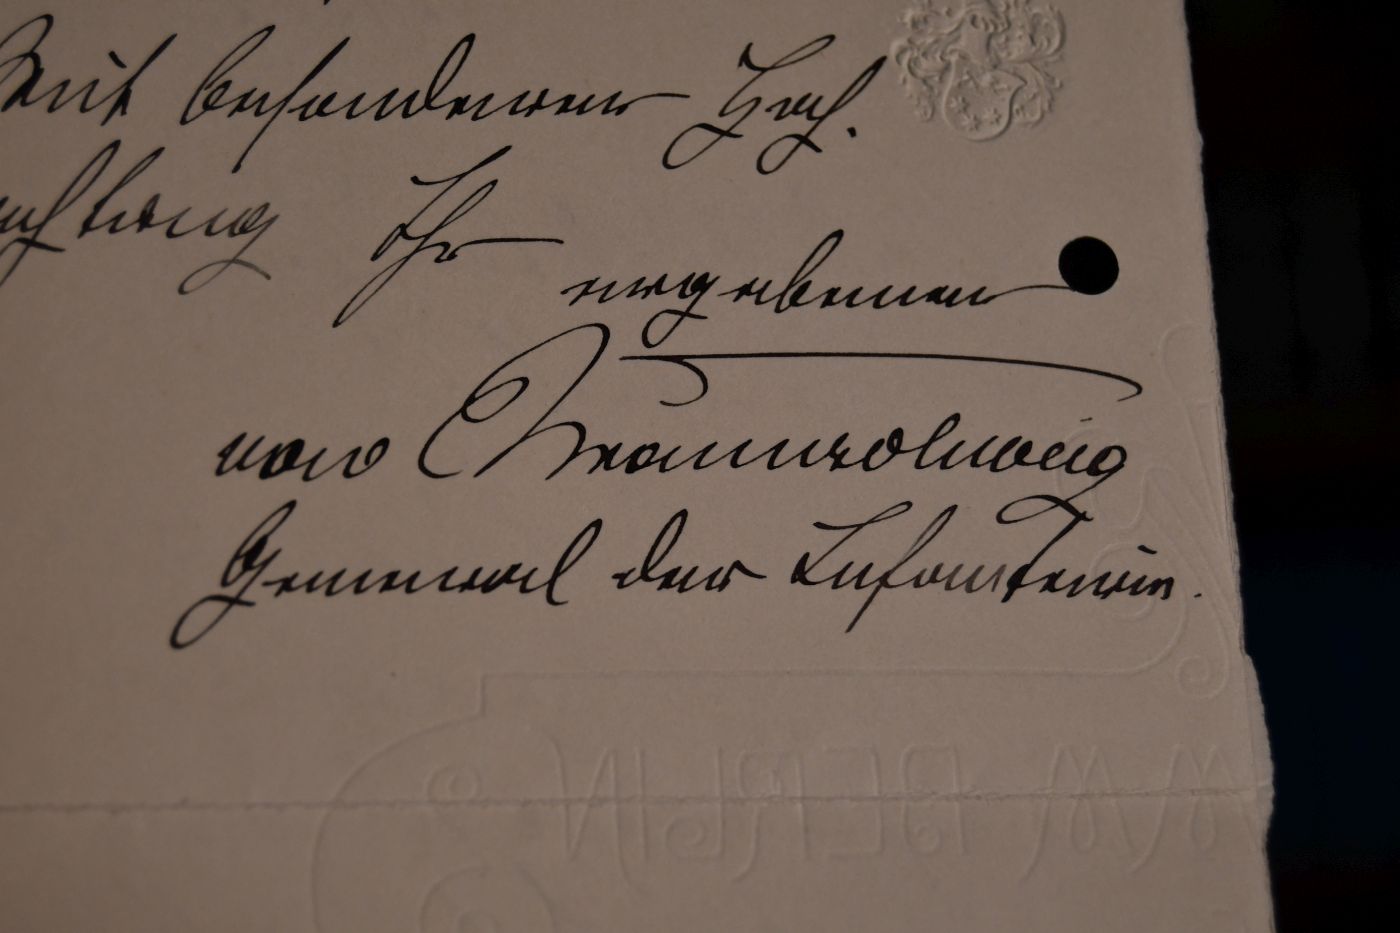 Mit besonderer Hoch-
achtung Ihr
ergebener
von Braunschweig
General der Infanterie.
BERLIN